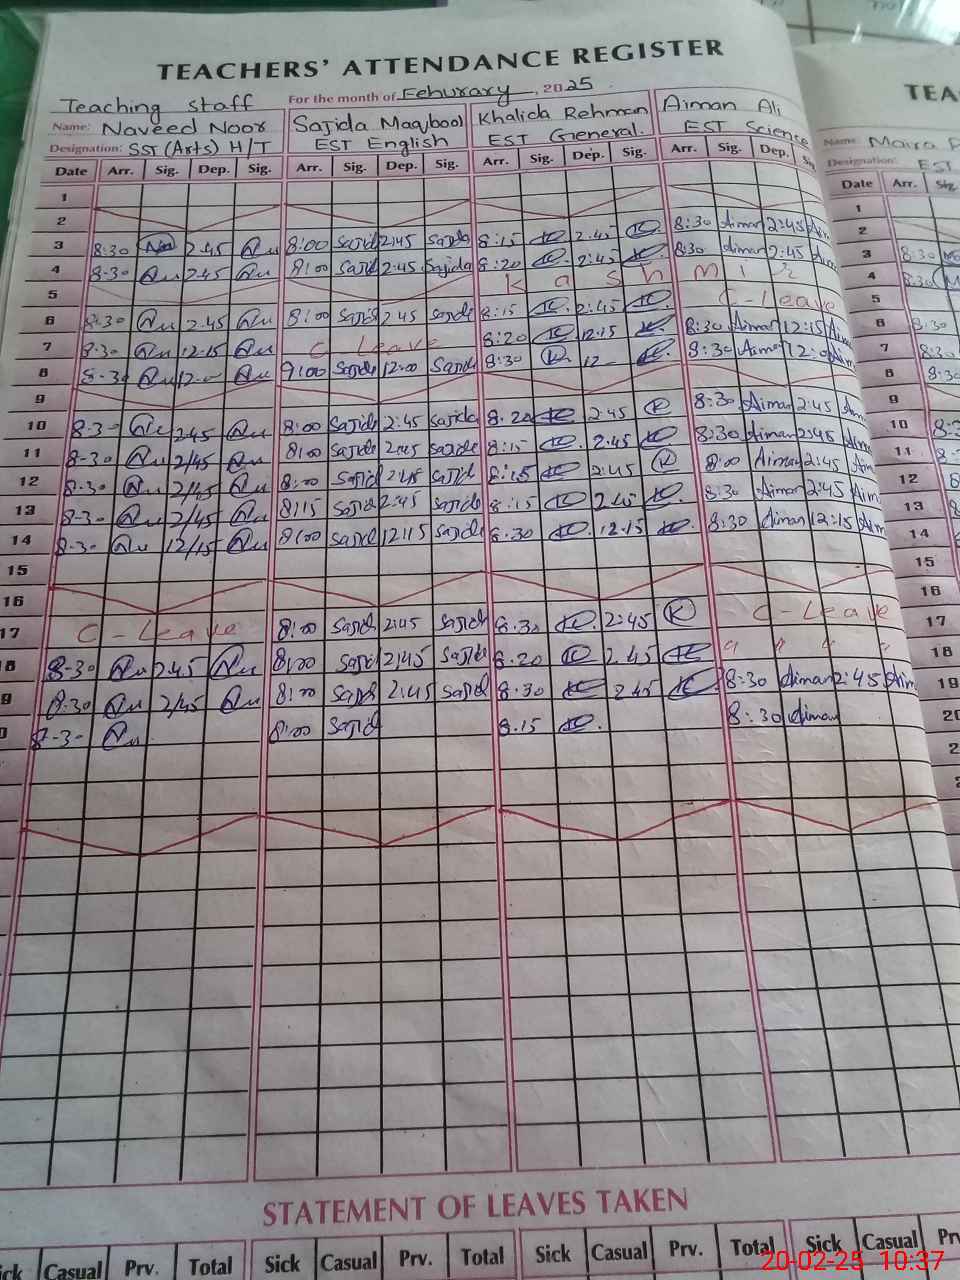 TEACHERS' ATTENDANCE REGISTER
TEA
Teaching staff For the month of Feburary, 2025
Name: Naveed Noor Sajida Maqbool Khalida Rehman Aiman Ali
Name: Maira
Designation: SST (Arts) H/T EST English EST General. EST Science
Designation: EST
Date Arr. Sig. Dep. Sig. Arr. Sig. Dep. Sig. Arr. Sig. Dep. Sig. Arr. Sig. Dep. Date Arr.
1 1
2 2
3 8:30 2:45 8:00 Sajid 2:45 Sajida 8:15 2:45 8:30 Aiman 2:45 3 8:30
4 8-30 2.45 8:00 Sajid 2:45 Sajida 8:20 2:45 8:30 Aiman 2:45 4 8:30
5 Kashmir 5
6 8:30 2.45 8:00 Sajid 2:45 Sajide 8:15 2:45 C-Leave 6 8:30
7 8:30 12-15 C Leave 8:20 12:15 8:30 Aiman 12:15 7 8:30
8 8-30 12-00 9:00 Sajide 12:00 Sajid 8:30 12 8:30 Aiman 12:0 8 8:30
9 9
10 8-30 2.45 8:00 Sajide 2:45 Sajida 8:20 2:45 8:30 Aiman 2:45 10
11 8-30 2/45 8:00 Sajide 2:45 Sajide 8:15 2:45 8:30 Aiman 2:45 11
12 8:30 2/45 8:00 Sajid 2:45 Sajid 8:15 2:45 8:00 Aiman 2:45 12
13 8-30 2/45 8:15 Sajid 2:45 Sajide 8:15 2.45 8:30 Aiman 2:45 13
14 8-30 12/15 8:00 Sajid 12:15 Sajide 8.30 12.15 8:30 Aiman 12:15 14
15 15
16 16
17 C-Leave 8:00 Sajid 2:45 Sajid 8.30 2:45 C-Leave 17
18 8-30 2.45 8:00 Sajid 2:45 Sajide 8.20 2.45 18
9 8.30 2/45 8:00 Sajid 2:45 Sajid 8:30 2.45 8:30 Aiman 2:45 19
8-30 8:00 Sajid 8.15 8:30 Aiman 20
2
STATEMENT OF LEAVES TAKEN
Sick Casual Prv. Total Sick Casual Prv. Total Sick Casual Prv. Total Sick Casual Prv
20-02-25 10:37